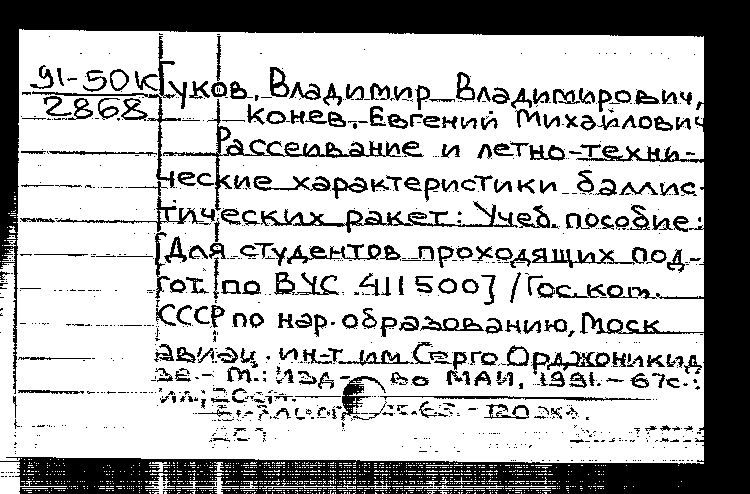 91-50К
2868
Гуков, Владимир Владимирович,
Конев, Евгений Михайлович
Рассеивание и летно-техни-
ческие характеристики баллис-
тических ракет: Учеб. пособие:
[Для студентов проходящих под-
гот. по ВУС 411500] / Гос. ком.
СССР по нар. образованию, Моск
авиац. ин-т им Серго Орджоникид
зе. - М.: Изд-во МАИ, 1991. - 67с.:
ил.; 20см.
Библиогр. с. 63. - 120 экз.